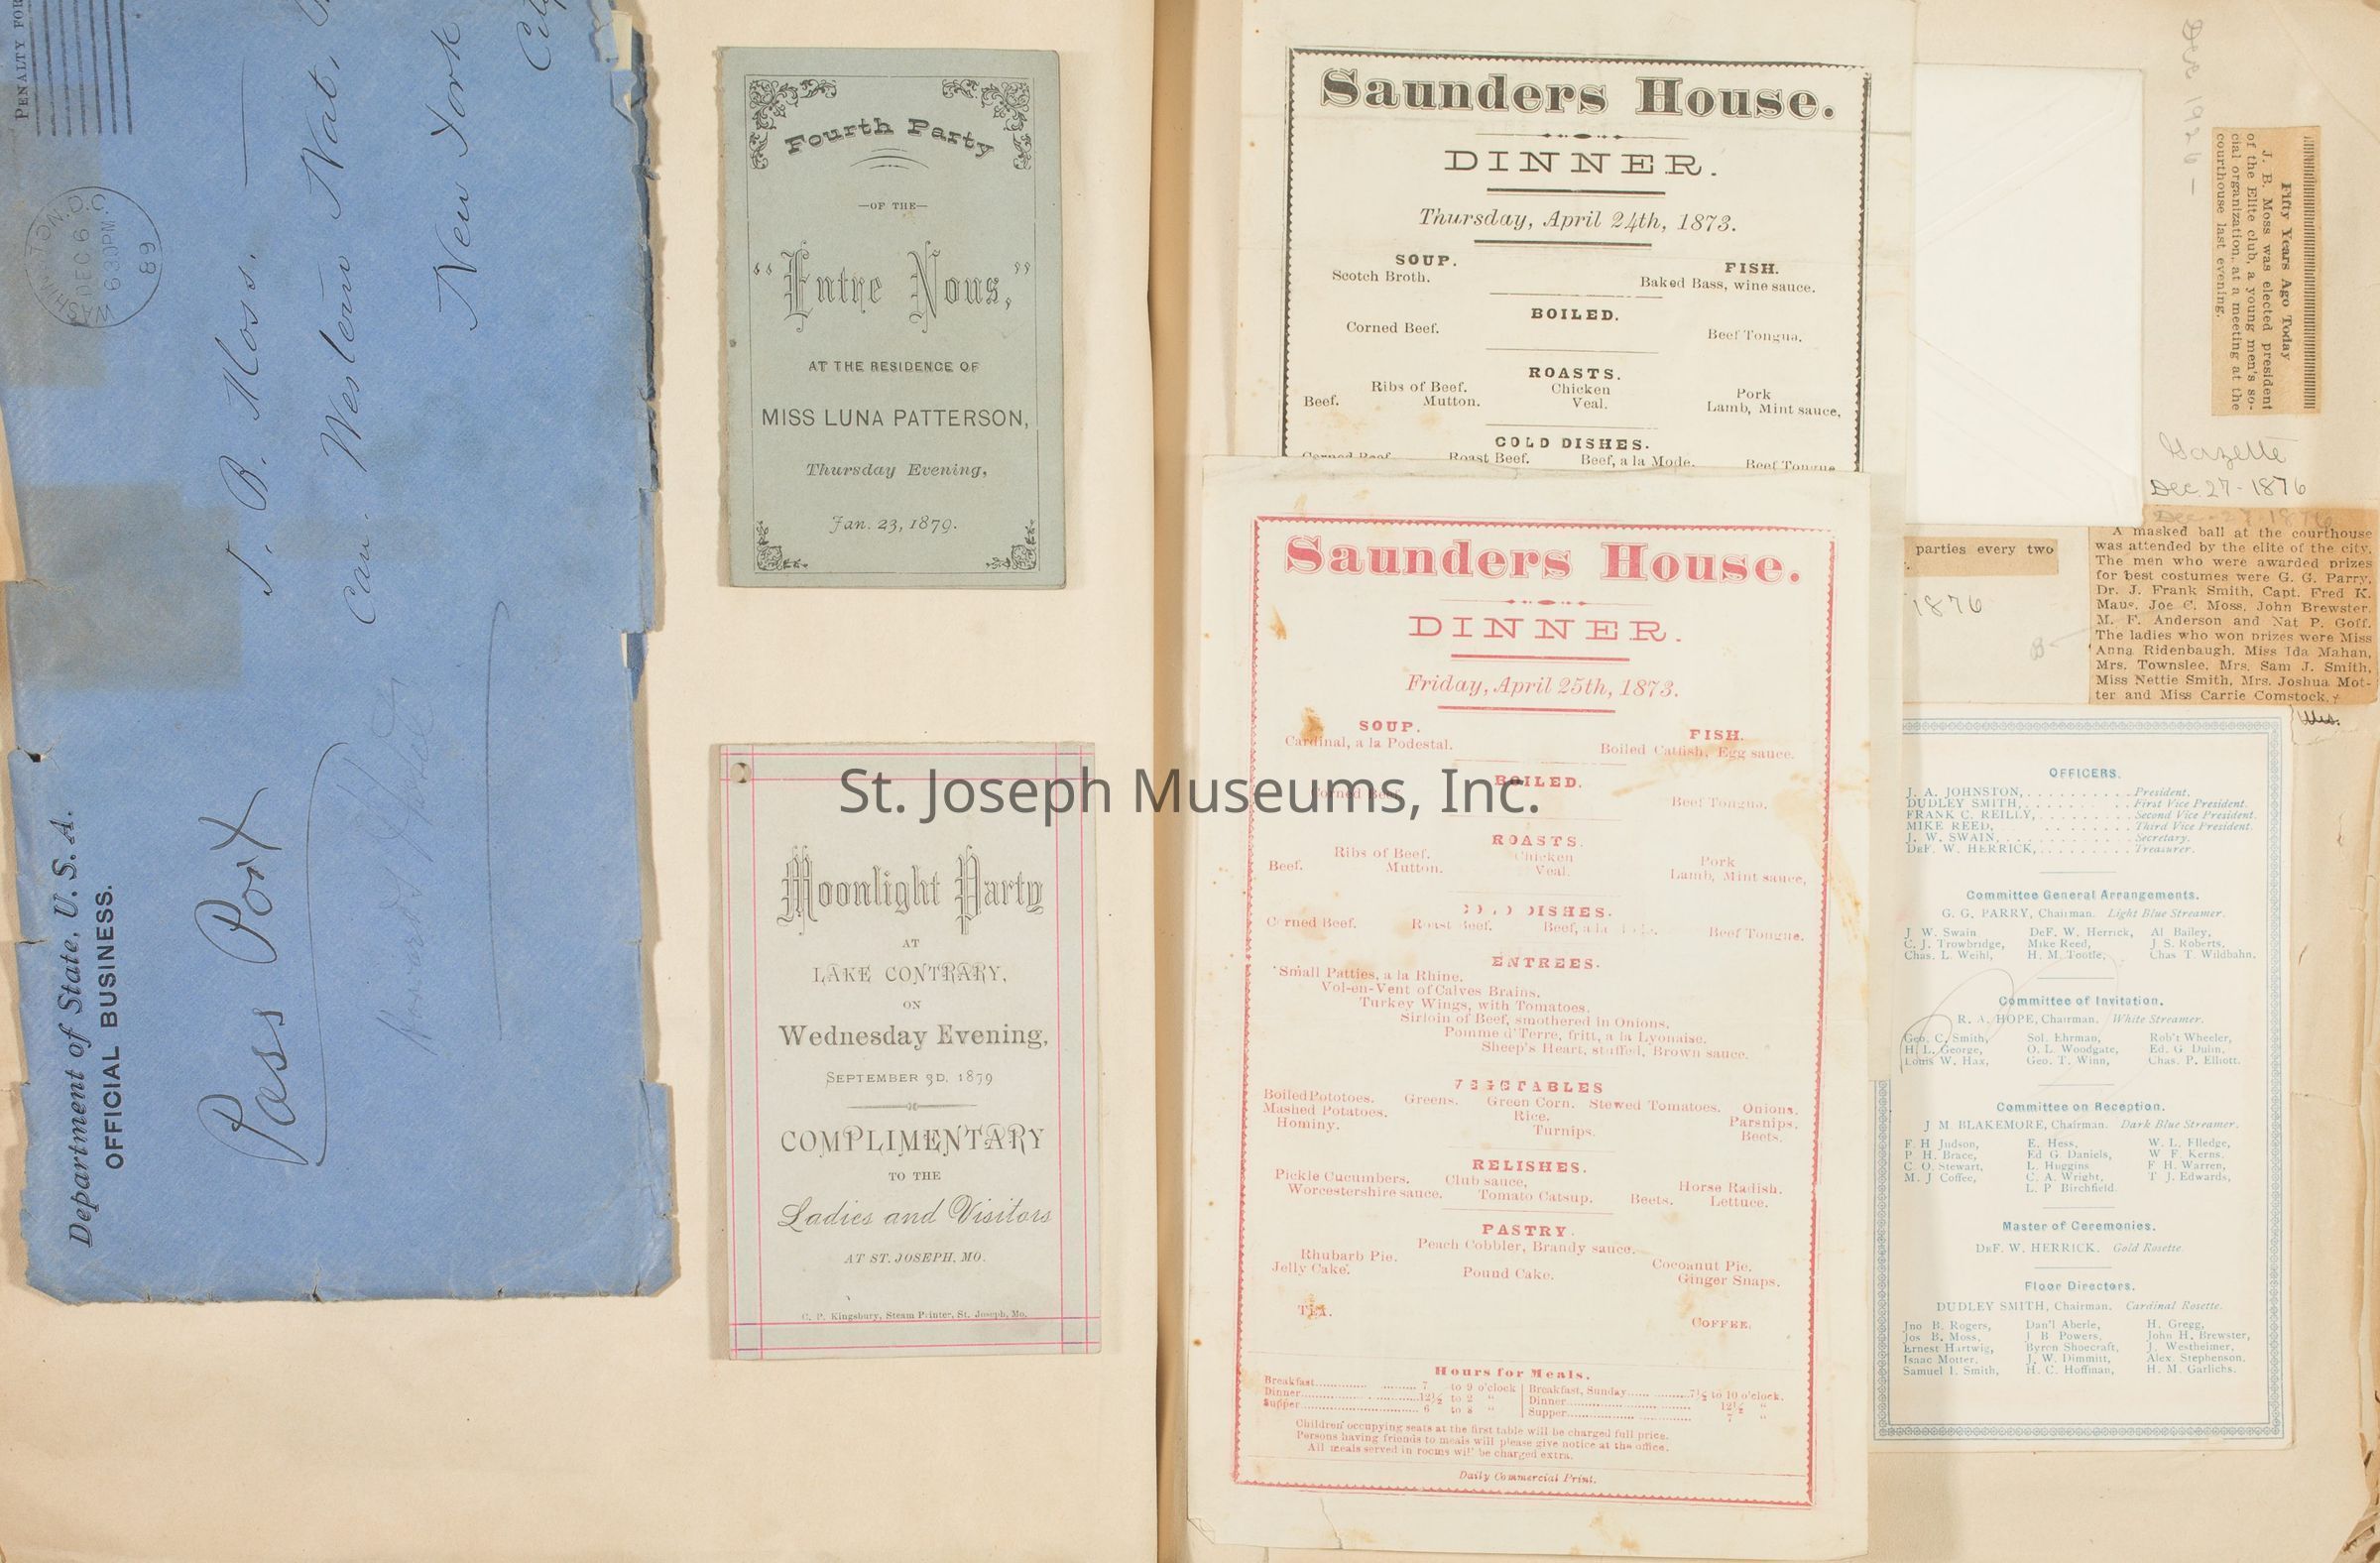 PENALTY FOR
WASHINGTON. D.C.
DEC 6
630PM
89
J. B. Moss.
Car. Western Nat.
New York
City
Pass Port
Department of State, U. S. A.
OFFICIAL BUSINESS.
Fourth Party
—OF THE—
"Entre Nous,"
AT THE RESIDENCE OF
MISS LUNA PATTERSON,
Thursday Evening,
Jan. 23, 1879.
Moonlight Party
AT
LAKE CONTRARY,
ON
Wednesday Evening,
SEPTEMBER 3D, 1879
COMPLIMENTARY
TO THE
Ladies and Visitors
AT ST. JOSEPH, MO.
C. P. Kingsbury, Steam Printer, St. Joseph, Mo.
Saunders House.
DINNER.
Thursday, April 24th, 1873.
SOUP. FISH.
Scotch Broth. Baked Bass, wine sauce.
BOILED.
Corned Beef. Beef Tongue.
ROASTS.
Ribs of Beef. Chicken Pork
Beef. Mutton. Veal. Lamb, Mint sauce,
COLD DISHES.
Corned Beef. Roast Beef. Beef, a la Mode. Beef Tongue
Saunders House.
DINNER.
Friday, April 25th, 1873.
SOUP. FISH.
Cardinal, a la Podestal. Boiled Catfish, Egg sauce.
BOILED.
Corned Beef. Beef Tongue.
ROASTS.
Ribs of Beef. Chicken Pork
Beef. Mutton. Veal. Lamb, Mint sauce,
COLD DISHES.
Corned Beef. Roast Beef. Beef, a la Beef Tongue.
ENTREES.
Small Patties, a la Rhine.
Vol-en-Vent of Calves Brains.
Turkey Wings, with Tomatoes.
Sirloin of Beef, smothered in Onions.
Pomme d'Terre, fritt, a la Lyonaise.
Sheep's Heart, stuffed, Brown sauce.
VEGETABLES
Boiled Pototoes. Greens. Green Corn. Stewed Tomatoes. Onions.
Mashed Potatoes. Rice. Parsnips.
Hominy. Turnips. Beets.
RELISHES.
Pickle Cucumbers. Club sauce, Horse Radish.
Worcestershire sauce. Tomato Catsup. Beets. Lettuce.
PASTRY.
Peach Cobbler, Brandy sauce.
Rhubarb Pie. Cocoanut Pie.
Jelly Cake. Pound Cake. Ginger Snaps.
TEA. COFFEE.
Hours for Meals.
Breakfast 7 to 9 o'clock Breakfast, Sunday 7½ to 10 o'clock.
Dinner 12½ to 2 " Dinner 12½ "
Supper 6 to 8 " Supper 7 "
Children occupying seats at the first table will be charged full price.
Persons having friends to meals will please give notice at the office.
All meals served in rooms will be charged extra.
Daily Commercial Print.
Dec 1926 —
Fifty Years Ago Today
J. B. Moss was elected president
of the Elite club, a young men's so-
cial organization, at a meeting at the
courthouse last evening.
Gazette
Dec. 27 - 1876
parties every two
1876
A masked ball at the courthouse
was attended by the elite of the city.
The men who were awarded prizes
for best costumes were G. G. Parry,
Dr. J. Frank Smith, Capt. Fred K.
Maus, Joe C. Moss, John Brewster,
M. F. Anderson and Nat P. Goff.
The ladies who won prizes were Miss
Anna Ridenbaugh, Miss Ida Mahan,
Mrs. Townslee, Mrs. Sam J. Smith,
Miss Nettie Smith, Mrs. Joshua Mot-
ter and Miss Carrie Comstock.
OFFICERS.
J. A. JOHNSTON, President.
DUDLEY SMITH, First Vice President.
FRANK C. REILLY, Second Vice President.
MIKE REED, Third Vice President.
J. W. SWAIN, Secretary.
DEF. W. HERRICK, Treasurer.
Committee General Arrangements.
G. G. PARRY, Chairman. Light Blue Streamer.
J W. Swain DeF. W. Herrick, Al Bailey,
C. J. Trowbridge, Mike Reed, J S. Roberts,
Chas. L. Weihl, H. M. Tootle, Chas T. Wildbahn.
Committee of Invitation.
R. A. HOPE, Chairman. White Streamer.
Geo. C. Smith, Sol. Ehrman, Rob't Wheeler,
H. L. George, O. L. Woodgate, Ed. G. Dulin,
Louis W. Hax, Geo. T. Winn, Chas. P. Elliott.
Committee on Reception.
J M. BLAKEMORE, Chairman. Dark Blue Streamer.
F. H Judson, E. Hess, W. L. Elledge,
P H. Brace, Ed G. Daniels, W F. Kerns,
C. O. Stewart, L. Huggins F H. Warren,
M. J Coffee, C. A. Wright, T J. Edwards,
L. P Birchfield.
Master of Ceremonies.
DEF. W. HERRICK. Gold Rosette.
Floor Directors.
DUDLEY SMITH, Chairman. Cardinal Rosette.
Jno B. Rogers, Dan'l Aberle, H. Gregg,
Jos B. Moss, J B Powers, John H. Brewster,
Ernest Hartwig, Byron Shoecraft, J. Westheimer,
Isaac Motter, J. W. Dimmitt, Alex. Stephenson,
Samuel I. Smith, H. C. Hoffman, H. M. Garlichs.
St. Joseph Museums, Inc.